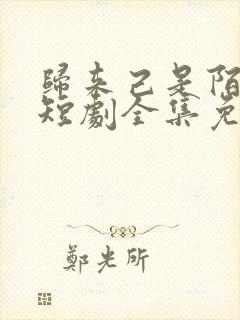 歸来已是陌
短劇全集免
鄭光所